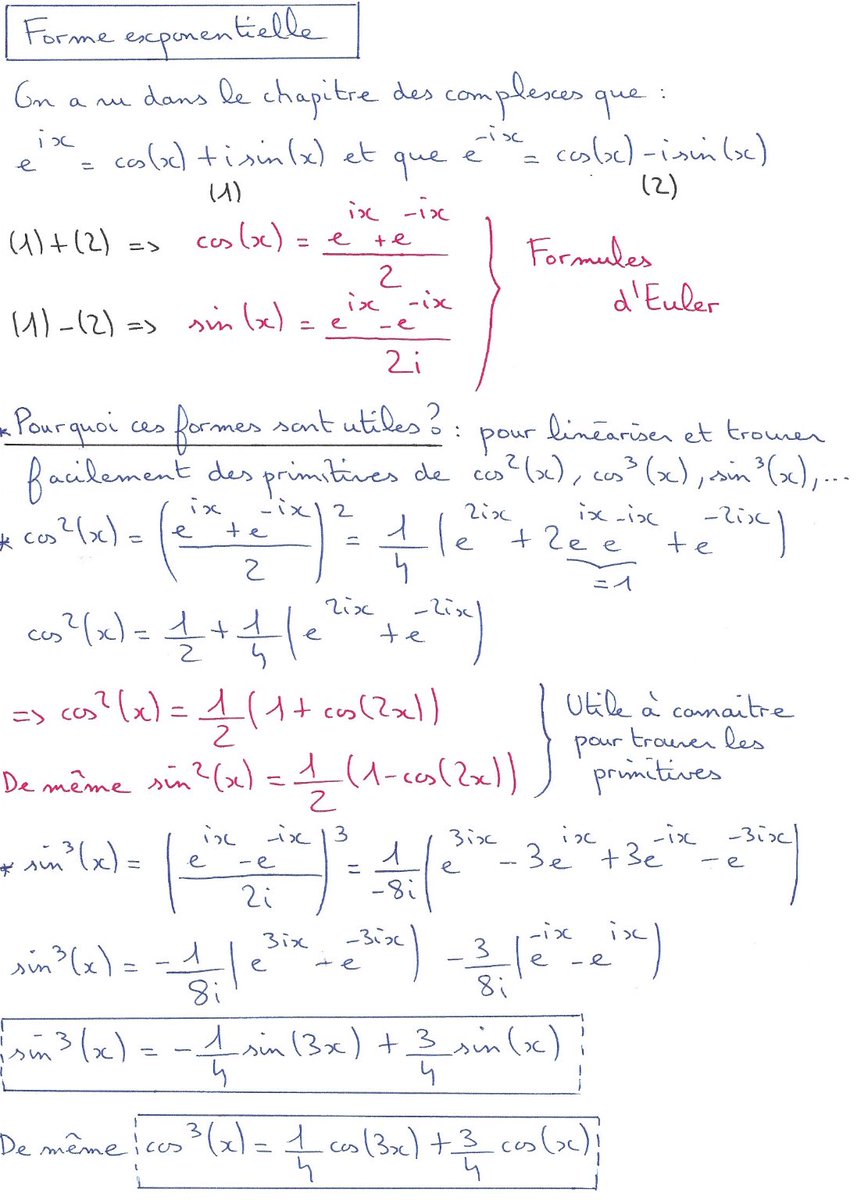 Forme exponentielle
On a vu dans le chapitre des complexes que :
e^{ix} = cos(x) + i sin(x) et que e^{-ix} = cos(x) - i sin(x)
(1) (2)
(1)+(2) => cos(x) = (e^{ix} + e^{-ix})/2
(1)-(2) => sin(x) = (e^{ix} - e^{-ix})/2i
Formules
d'Euler
* Pourquoi ces formes sont utiles ? : pour linéariser et trouver
facilement des primitives de cos²(x), cos³(x), sin³(x), ...
* cos²(x) = ((e^{ix} + e^{-ix})/2)² = 1/4 (e^{2ix} + 2e^{ix} e^{-ix} + e^{-2ix})
=1
cos²(x) = 1/2 + 1/4 (e^{2ix} + e^{-2ix})
=> cos²(x) = 1/2 (1 + cos(2x))
De même sin²(x) = 1/2 (1 - cos(2x))
Utile à connaitre
pour trouver les
primitives
* sin³(x) = ((e^{ix} - e^{-ix})/2i)³ = 1/-8i (e^{3ix} - 3e^{ix} + 3e^{-ix} - e^{-3ix})
sin³(x) = -1/8i (e^{3ix} - e^{-3ix}) - 3/8i (e^{-ix} - e^{ix})
sin³(x) = -1/4 sin(3x) + 3/4 sin(x)
De même cos³(x) = 1/4 cos(3x) + 3/4 cos(x)